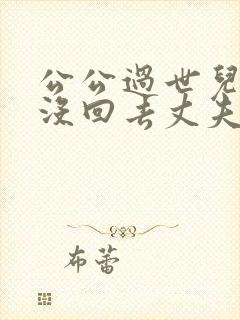 公公過世兒
沒回去丈夫
布蕾